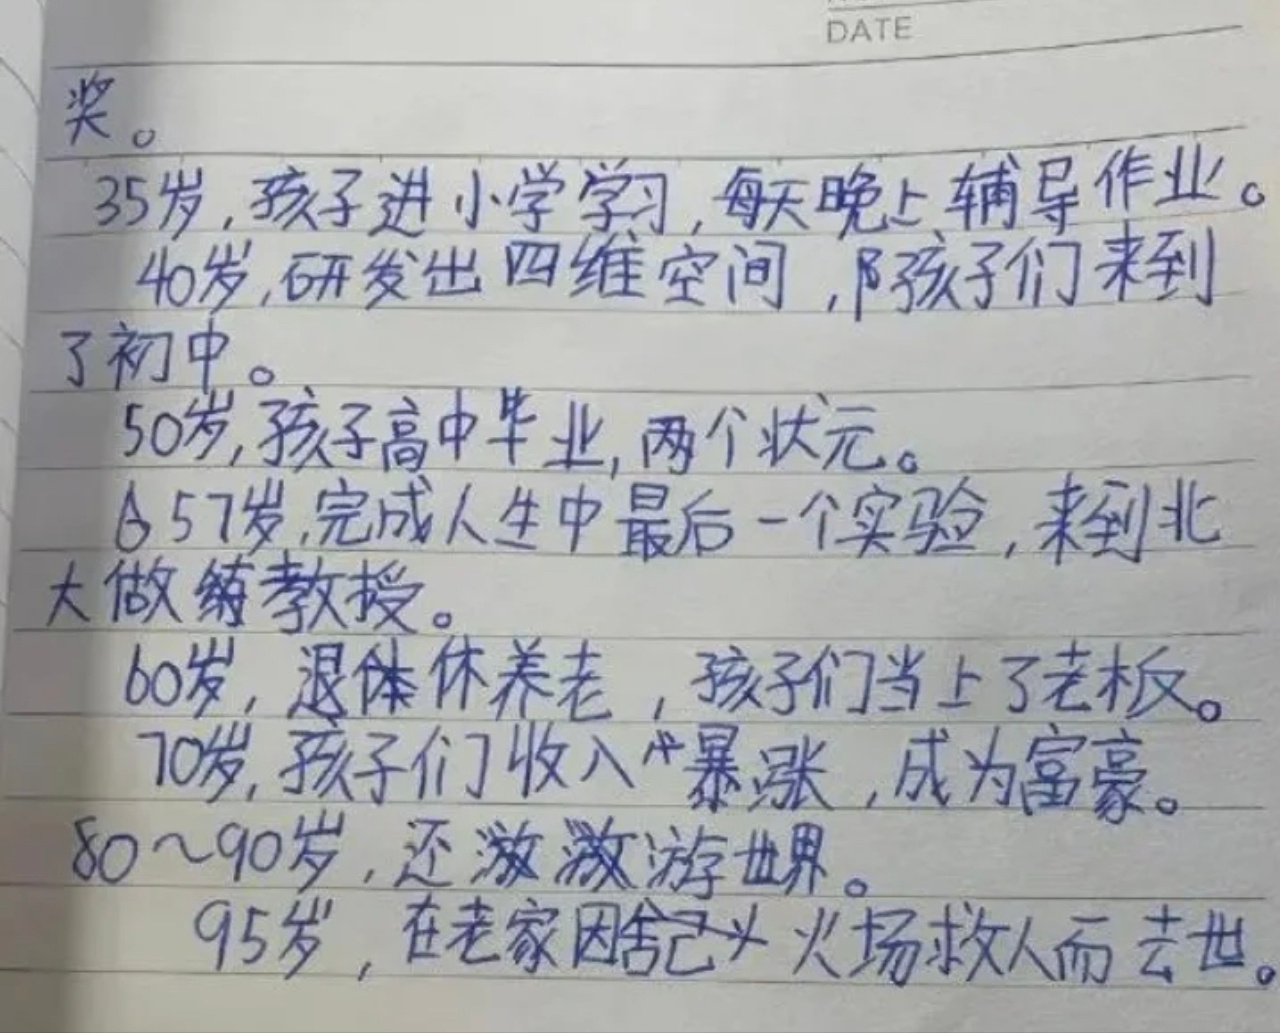 DATE
奖。
35岁,孩子进小学学习,每天晚上辅导作业。
40岁,研发出四维空间,孩子们来到
了初中。
50岁,孩子高中毕业,两个状元。
57岁,完成人生中最后一个实验,来到北
大做教授。
60岁,退休养老,孩子们当上了老板。
70岁,孩子们收入暴涨,成为富豪。
80~90岁,还游世界。
95岁,在老家因火场救人而去世。